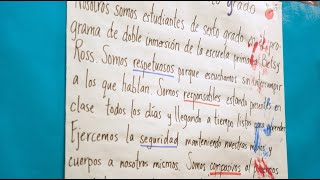 grado
Nosotros somos estudiantes de sexto grado pro-
grama de doble inmersión de la escuela Betsy
Ross. Somos respetuosos porque escuchamos sin interrumpir
a los que hablan. Somos responsables estando presentes en
clase todos los días y llegando a tiempo listos para
Ejercemos la seguridad manteniendo nuestras manos y
cuerpos a nosotros mismos. Somos compasivos al